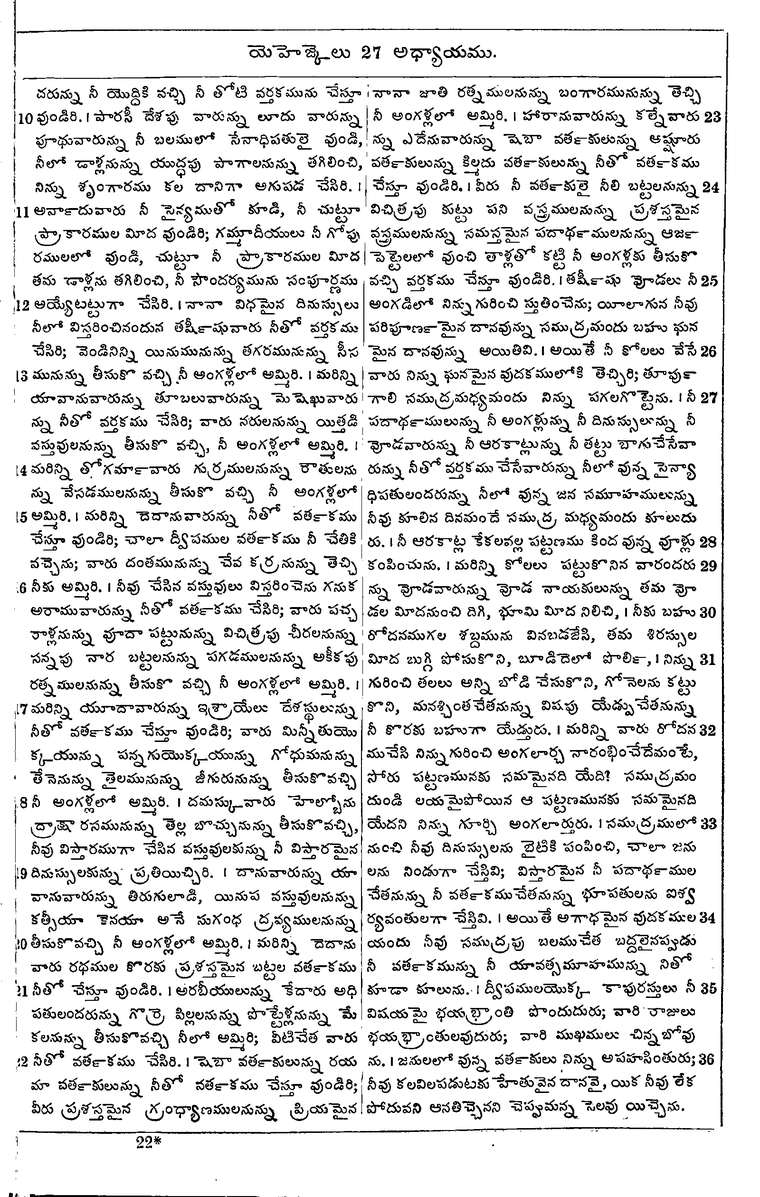 యెహెజ్కెలు 27 అధ్యాయము.
దరున్ను నీ యొద్దికి వచ్చి నీ తోటి వర్తకమును చేస్తూ
10 వుండిరి. । పారసీ దేశపు వారున్ను లూదు వారున్ను
పూథువారున్ను నీ బలములో సేనాధిపతులై వుండి,
నీలో డాళ్లనున్ను యుద్ధపు పాగాలనున్ను తగిలించి,
నిన్ను శృంగారము కల దానిగా అగుపడ చేసిరి. ।
11 అర్వాదువారు నీ సైన్యముతో కూడి, నీ చుట్టూ
ప్రాకారముల మీద వుండిరి; గమ్మాదీయులు నీ గోపు
రములలో వుండి, చుట్టూ నీ ప్రాకారముల మీద
తమ డాళ్లను తగిలించి, నీ సౌందర్యమును సంపూర్ణము
12 అయ్యేటట్టుగా చేసిరి. । నానా విధమైన దినుస్సులు
నీలో విస్తరించినందున తర్షీషువారు నీతో వర్తకము
చేసిరి; వెండినిన్ని యినుమునున్ను తగరమునున్ను సీస
13 మునున్ను తీసుకొ వచ్చి నీ అంగళ్లలో అమ్మిరి. । మరిన్ని
యావానువారున్ను తూబలువారున్ను మెషెఖువారు
న్ను నీతో వర్తకము చేసిరి; వారు నరులనున్ను యిత్తడి
వస్తువులనున్ను తీసుకొ వచ్చి, నీ అంగళ్లలో అమ్మిరి. ।
14 మరిన్ని తోగర్మావారు గుర్రములనున్ను రౌతులను
న్ను వేసడములనున్ను తీసుకొ వచ్చి నీ అంగళ్లలో
15 అమ్మిరి. । మరిన్ని దెదానువారున్ను నీతో వర్తకము
చేస్తూ వుండిరి; చాలా ద్వీపముల వర్తకము నీ చేతికి
వచ్చెను; వారు దంతమునున్ను చేవ కర్రనున్ను తెచ్చి
6 నీకు అమ్మిరి. । నీవు చేసిన వస్తువులు విస్తరించెను గనుక
అరామువారున్ను నీతో వర్తకము చేసిరి; వారు పచ్చ
రాళ్లనున్ను వూదా పట్టునున్ను విచిత్రపు చీరలనున్ను
సన్నపు నార బట్టలనున్ను పగడములనున్ను అకీకపు
రత్నములనున్ను తీసుకొ వచ్చి నీ అంగళ్లలో అమ్మిరి. ।
17 మరిన్ని యూదావారున్ను ఇశ్రాయేలు దేశస్థులున్ను
నీతో వర్తకము చేస్తూ వుండిరి; వారు మిన్నీతుయొ
క్కయున్ను పన్నగుయొక్కయున్ను గోధుమనున్ను
తేనెనున్ను తైలమునున్ను జీగురునున్ను తీసుకొవచ్చి
8 నీ అంగళ్లలో అమ్మిరి. । దమస్కువారు హెల్బోను
ద్రాక్షా రసమునున్ను తెల్ల బొచ్చునున్ను తీసుకొవచ్చి,
నీవు విస్తారముగా చేసిన వస్తువులకున్ను నీ విస్తారమైన
19 దినుస్సులకున్ను ప్రతియిచ్చిరి. । దానువారున్ను యా
వానువారున్ను తిరుగులాడి, యినుప వస్తువులనున్ను
కత్సీయా కెనయా అనే సుగంధ ద్రవ్యములనున్ను
20 తీసుకొవచ్చి నీ అంగళ్లలో అమ్మిరి. । మరిన్ని దెదాను
వారు రథముల కొరకు ప్రశస్తమైన బట్టల వర్తకము
21 నీతో చేస్తూ వుండిరి. । అరబీయులున్ను కేదారు అధి
పతులందరున్ను గొర్రె పిల్లలనున్ను పొట్టేళ్లనున్ను మే
కలనున్ను తీసుకొవచ్చి నీలో అమ్మిరి; వీటిచేత వారు
12 నీతో వర్తకము చేసిరి. । షెబా వర్తకులున్ను రయ
మా వర్తకులున్ను నీతో వర్తకము చేస్తూ వుండిరి;
వీరు ప్రశస్తమైన గ్రంధ్యాణములనున్ను ప్రియమైన
నానా జాతి రత్నములనున్ను బంగారమునున్ను తెచ్చి
నీ అంగళ్లలో అమ్మిరి. । హారానువారున్ను కల్నేవారు 23
న్ను ఎదేనువారున్ను షెబా వర్తకులున్ను అష్షూరు
వర్తకులున్ను కిల్మదు వర్తకులున్ను నీతో వర్తకము
చేస్తూ వుండిరి. । వీరు నీ వర్తకులై నీలి బట్టలనున్ను 24
విచిత్రపు కుట్టు పని వస్త్రములనున్ను ప్రశస్తమైన
వస్త్రములనున్ను సమస్తమైన పదార్థములనున్ను ఆర్జ
పెట్టెలలో వుంచి తాళ్లతో కట్టి నీ అంగళ్లకు తీసుకొ
వచ్చి వర్తకము చేస్తూ వుండిరి. । తర్షీషు వోడలు నీ 25
అంగడిలో నిన్నుగురించి స్తుతించెను; యీలాగున నీవు
పరిపూర్ణమైన దానవున్ను సముద్రమందు బహు ఘన
మైన దానవున్ను అయితివి. । అయితే నీ కోలలు వేసే 26
వారు నిన్ను ఘనమైన వుదకములోకి తెచ్చిరి; తూర్పు
గాలి సముద్రమధ్యమందు నిన్ను పగలగొట్టెను. । నీ 27
పదార్థములున్ను నీ అంగళ్లున్ను నీ దినుస్సులున్ను నీ
వోడవారున్ను నీ ఆరకాట్లున్ను నీ తట్టు బాగుచేసేవా
రున్ను నీతో వర్తకము చేసేవారున్ను నీలో వున్న సైన్యా
ధిపతులందరున్ను నీలో వున్న జన సమూహములున్ను
నీవు కూలిన దినమందే సముద్ర మధ్యమందు కూలుదు
రు. । నీ ఆరకాట్ల కేకలవల్ల పట్టణము కింద వున్న వూళ్లు 28
కంపించును. । మరిన్ని కోలలు పట్టుకొనిన వారందరు 29
న్ను వోడవారున్ను వోడ నాయకులున్ను తమ వో
డల మీదనుంచి దిగి, భూమి మీద నిలిచి, । నీకు బహు 30
రోదనముగల శబ్దమును వినబడజేసి, తమ శిరస్సుల
మీద బుగ్గి పోసుకొని, బూడిదెలో పొర్లి, । నిన్ను 31
గురించి తలలు అన్ని బోడి చేసుకొని, గోనెలను కట్టు
కొని, మనశ్చింతచేతనున్ను విషపు యేడ్పుచేతనున్ను
నీ కొరకు బహుగా యేడ్తురు. । మరిన్ని వారు రోదన 32
ముచేసి నిన్నుగురించి అంగలార్చ నారంభించేదేమంటే,
సోరు పట్టణమునకు సమమైనది యేది? సముద్రమం
దుండి లయమైపోయిన ఆ పట్టణమునకు సమమైనది
యేదని నిన్ను గూర్చి అంగలార్తురు. । సముద్రములో 33
నుంచి నీవు దినుస్సులను బైటికి పంపించి, చాలా జను
లను నిండుగా చేస్తివి; విస్తారమైన నీ పదార్థముల
చేతనున్ను నీ వర్తకముచేతనున్ను భూపతులను ఐశ్వ
ర్యవంతులగా చేస్తివి. । అయితే అగాధమైన వుదకముల 34
యందు నీవు సముద్రపు బలముచేత బద్దలైనప్పుడు
నీ వర్తకమున్ను నీ యావత్సమూహమున్ను నీతో
కూడా కూలును. । ద్వీపములయొక్క కాపురస్తులు నీ 35
విషయమై భయభ్రాంతి పొందుదురు; వారి రాజులు
భయభ్రాంతులవుదురు; వారి ముఖములు చిన్నబోవు
ను. । జనులలో వున్న వర్తకులు నిన్ను అపహసింతురు; 36
నీవు కలవిలపడుటకు హేతువైన దానవై, యిక నీవు లేక
పోదువని ఆనతిచ్చెనని చెప్పుమన్న సెలవు యిచ్చెను.
22*